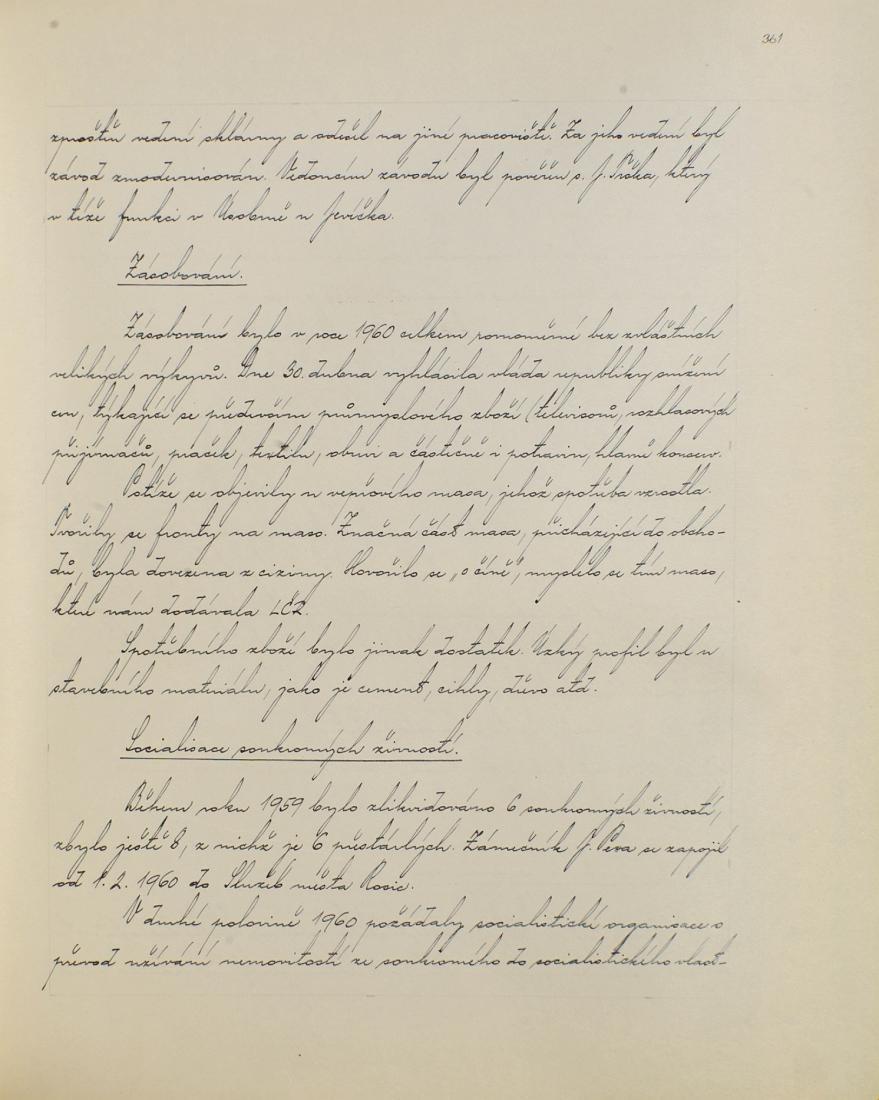 361
zproštěn vedení sklárny a odešel na jiné pracoviště. Za jeho vedení byl
závod zmodernisován. Vedoucím závodu byl pověřen s. J. který
v téže funkci v Úsobrně u Jevíčka.
Zásobování.
Zásobování bylo v roce 1960 celkem rovnoměrné bez zvláštních
velikých výkyvů. Dne 30. dubna vyhlásila vláda republiky snížení
cen, týkající se především průmyslového zboží (televisorů, rozhlasových
přijímačů, praček, textilu, obuvi a částečně i potravin, hlavně konserv.
Potíže se objevily u vepřového masa, jehož spotřeba vzrostla.
Tvořily se fronty na maso. Značná část masa, přicházející do obcho-
dů, byla dovezena z ciziny. Hovořilo se „o číně", myslelo se tím maso,
které nám dodávala LČR.
Spotřebního zboží bylo jinak dostatek. Úzký profil byl u
stavebního materiálu, jako je cement, cihly, dřevo atd.
Socialisace soukromých živností.
Během roku 1959 bylo zlikvidováno 6 soukromých živností,
zbylo ještě 8, z nichž je 6 přestárlých. Zámečník J. se zapojil
od 1. 2. 1960 do Služeb města Rosic.
V druhé polovině 1960 požádaly socialistické organisace o
převod užívání nemovitostí ze soukromého do socialistického vlast-